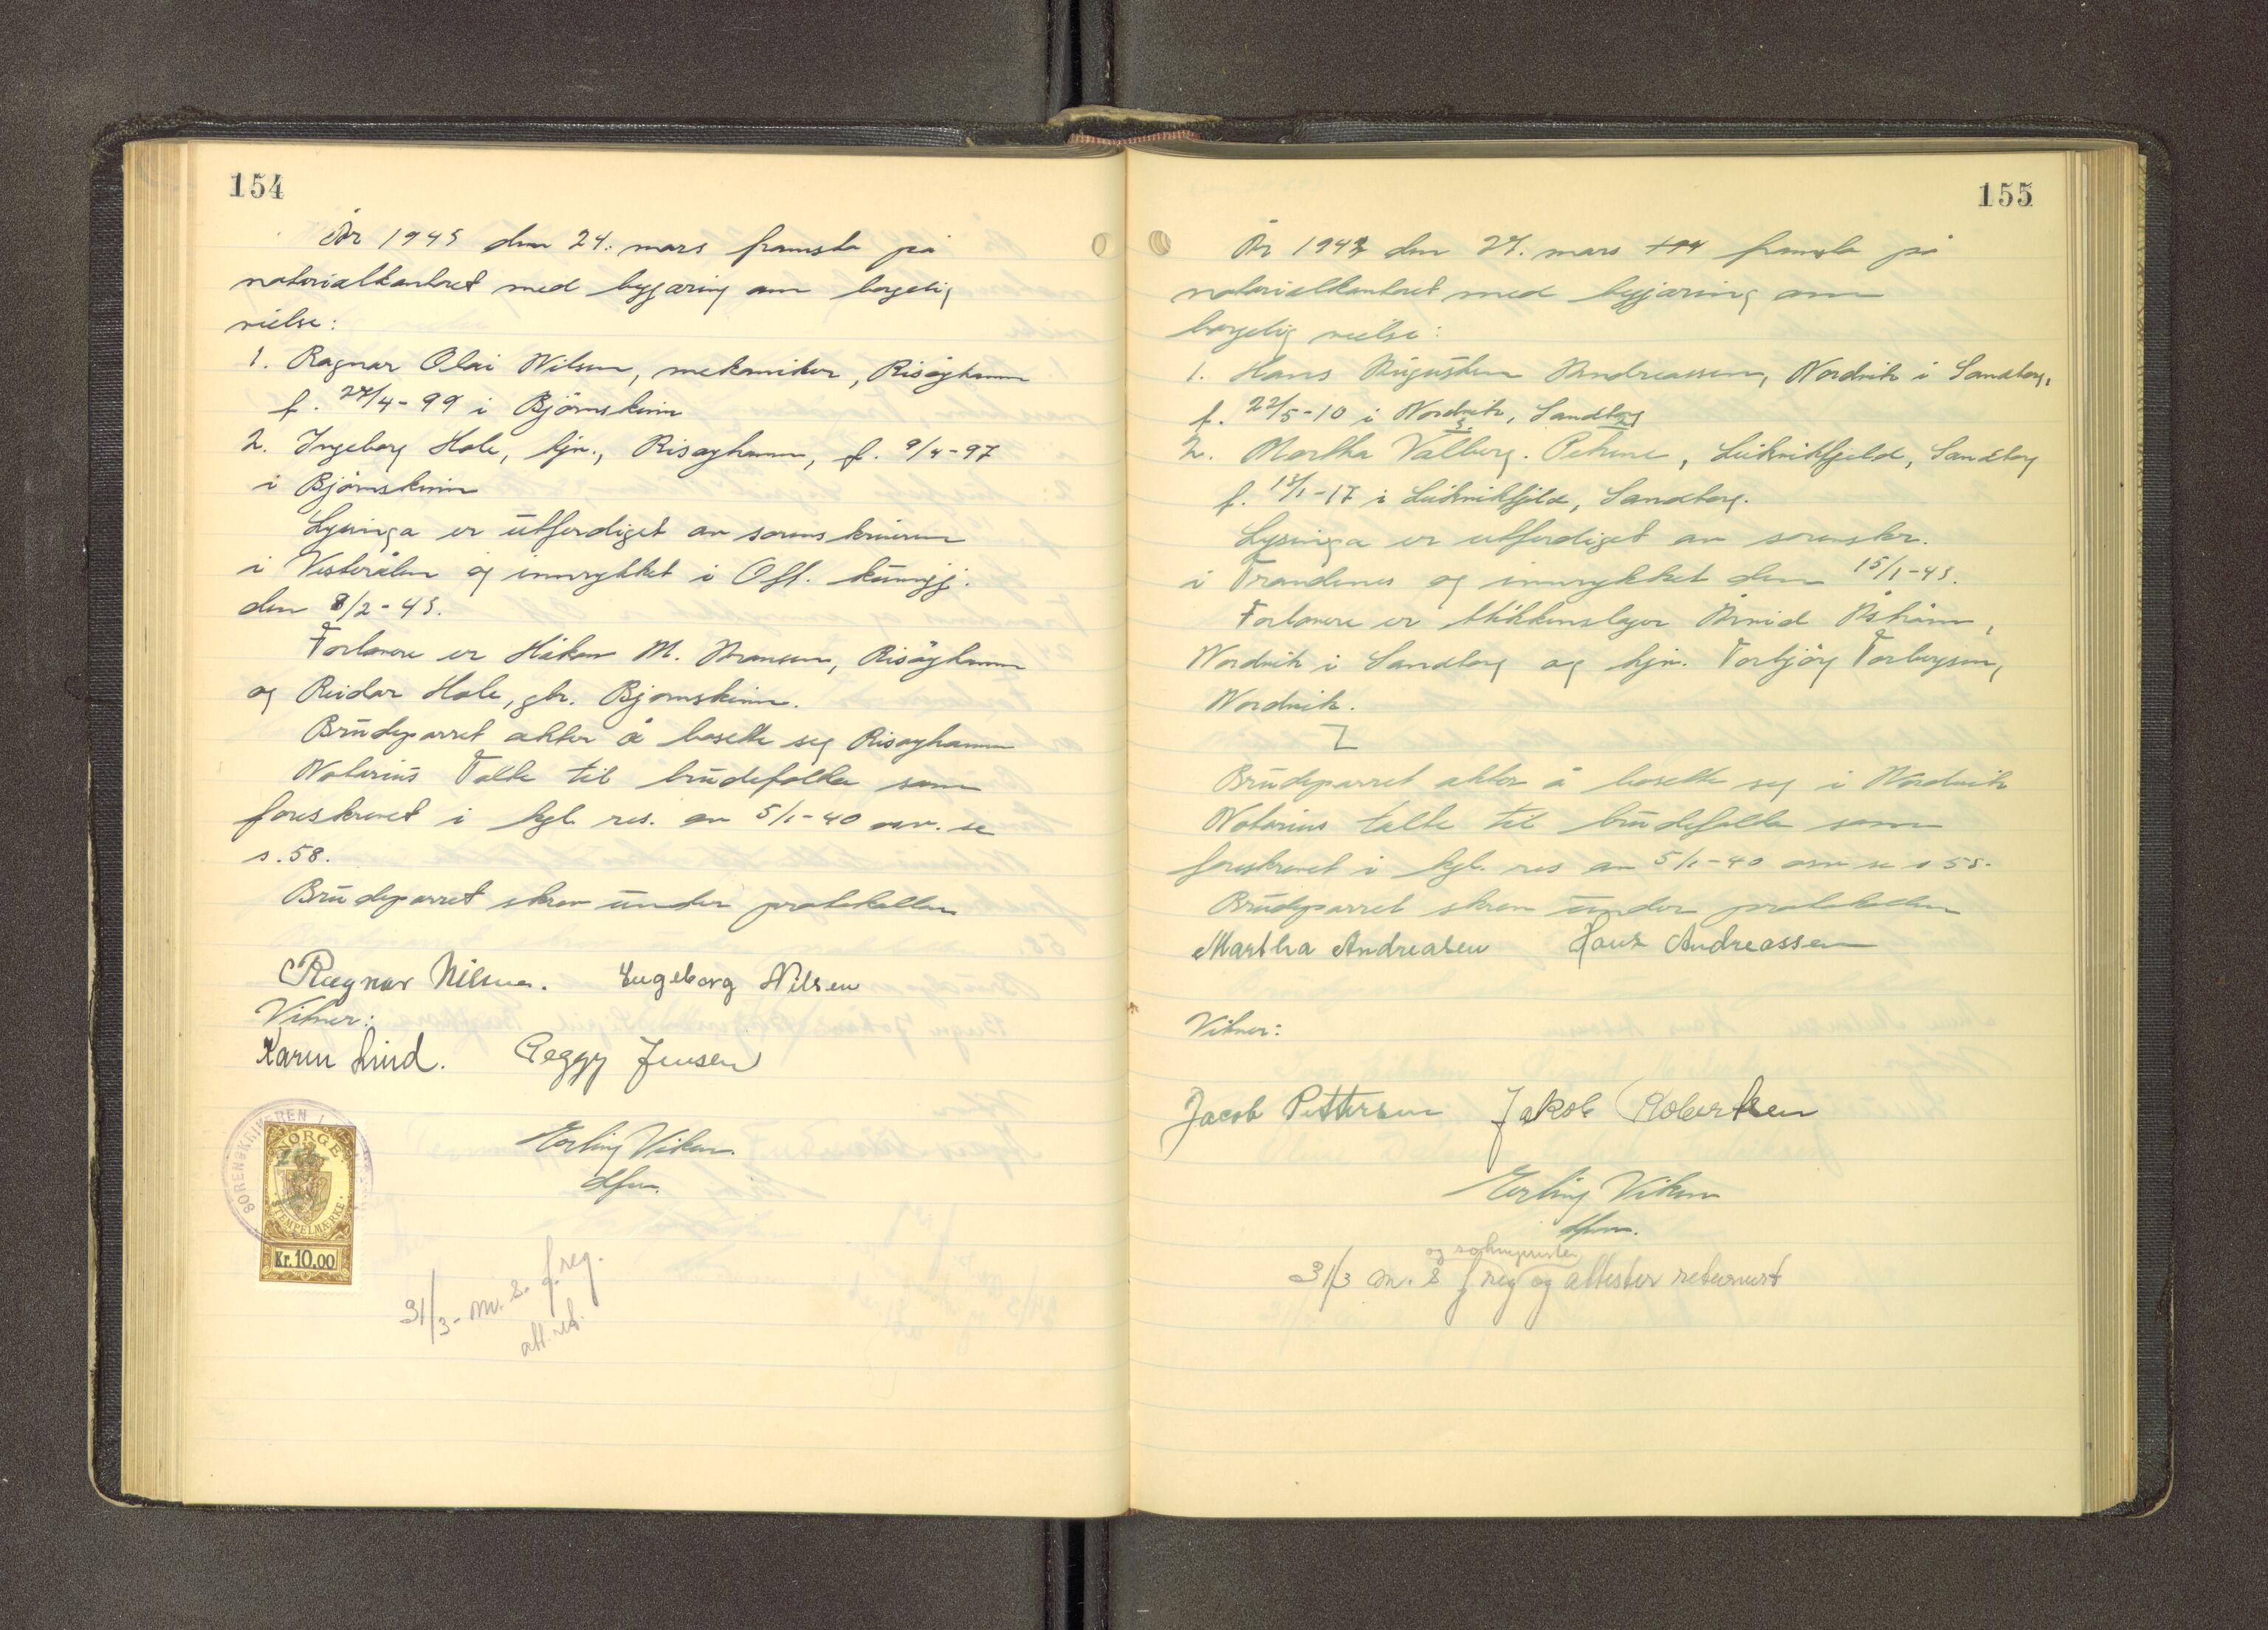 154
År 1943 den 24. mars framsto på
notarialkontoret med bygjæring om borgelig
vielse:
1. Ragnar Olai Nilsen, mekaniker, Risøyhamn
f. 27/4-99 i Bjørnskinn
2. Ingeborg Hole, hjv., Risøyhamn, f. 9/4-97
i Bjørnskinn
Lysinga er utferdiget av sorenskriveren
i Vesterålen og innrykket i Off. kunngj.
den 8/2-43.
Forlovere er Håkon M. Risøyhamn
og Reidar Hole, gbr. Bjørnskinn.
Brudeparret akter å bosette seg Risøyhamn
Notarius Talte til brudefolka som
foreskrevet i kgl. res. av 5/1-40 osv. se
s. 58.
Brudeparret skrev under protokollen
Ragnar Nilsen. Ingeborg Nilsen
Vitner:
Karen Lind. Peggy Jensen
Erling Viken.
dfm.
SORENSKRIVEREN I
NORGE
STEMPELMÆRKE
Kr. 10.00
31/3- m. s. f. reg.
att. ret.
155
År 1943 den 27. mars framsto på
notarialkontoret med bygjæring om
borgelig vielse:
1. Hans Augustin Andreassen, Nordvik i Sandtorg,
f. 22/5-10 i Nordvik, Sandtorg
2. Martha Valberg Petrine, Leikvikfjeld, Sandtorg
f. 13/1-17 i Leikvikfjeld, Sandtorg.
Lysinga er utferdiget av sorenskr.
i Trondenes og innrykket den 15/1-43.
Forlovere er blikkenslager Arvid
Nordvik i Sandtorg og hjv. Torbjørg Torbergsen,
Nordvik.
Brudeparret akter å bosette seg i Nordvik
Notarius talte til brudefolka som
foreskrevet i kgl. res av 5/1-40 osv se s 58.
Brudeparret skrev under protokollen
Martha Andreasen Hans Andreassen
Vitner:
Jacob Pettersen Jakob Robertsen
Erling Viken
dfm.
og soknepresten
31/3 m. s f reg og attester returnert